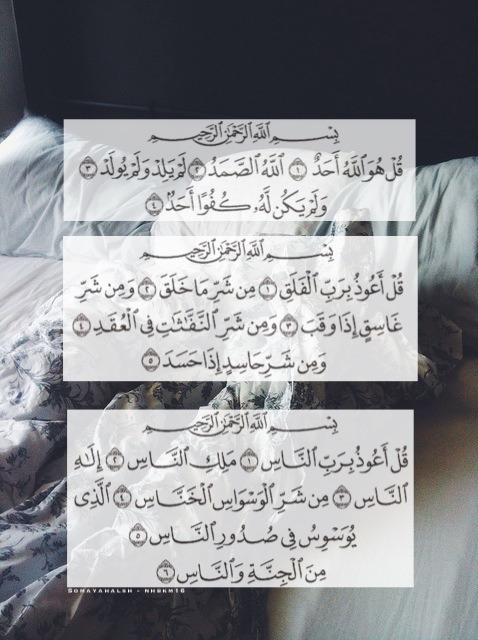 بِسْمِ اللَّهِ الرَّحْمَٰنِ الرَّحِيمِ
قُلْ هُوَ اللَّهُ أَحَدٌ ۝١ اللَّهُ الصَّمَدُ ۝٢ لَمْ يَلِدْ وَلَمْ يُولَدْ ۝٣
وَلَمْ يَكُن لَّهُۥ كُفُوًا أَحَدٌۢ ۝٤
بِسْمِ اللَّهِ الرَّحْمَٰنِ الرَّحِيمِ
قُلْ أَعُوذُ بِرَبِّ الْفَلَقِ ۝١ مِن شَرِّ مَا خَلَقَ ۝٢ وَمِن شَرِّ
غَاسِقٍ إِذَا وَقَبَ ۝٣ وَمِن شَرِّ النَّفَّٰثَٰتِ فِي الْعُقَدِ ۝٤
وَمِن شَرِّ حَاسِدٍ إِذَا حَسَدَ ۝٥
بِسْمِ اللَّهِ الرَّحْمَٰنِ الرَّحِيمِ
قُلْ أَعُوذُ بِرَبِّ النَّاسِ ۝١ مَلِكِ النَّاسِ ۝٢ إِلَٰهِ
النَّاسِ ۝٣ مِن شَرِّ الْوَسْوَاسِ الْخَنَّاسِ ۝٤ الَّذِي
يُوَسْوِسُ فِي صُدُورِ النَّاسِ ۝٥
مِنَ الْجِنَّةِ وَالنَّاسِ ۝٦
SOMAYAHALSH - NHSKM16